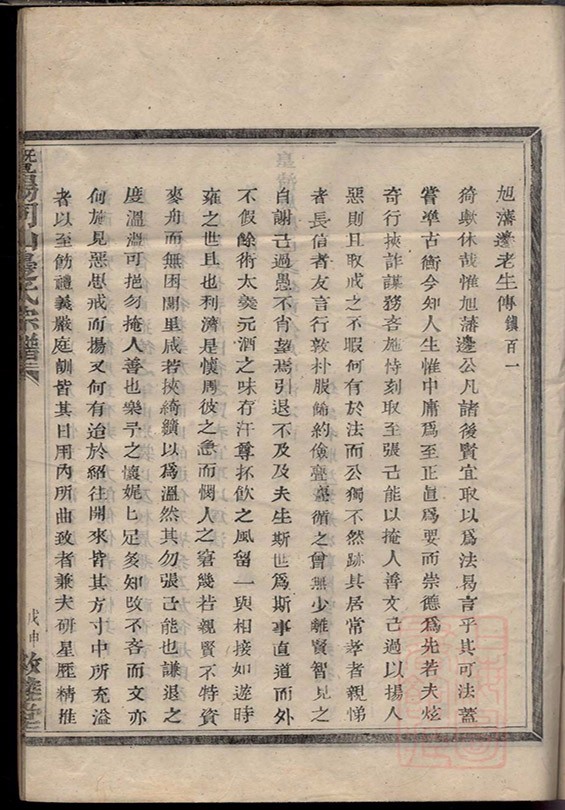 旭濤邊老生傳 鎮百一
猗歟休哉惟旭濤邊公凡諸後賢宜取以爲法曷言乎其可法蓋
嘗準古衡今知人生惟中庸爲至正眞爲要而崇德爲先若夫炫
奇行挾詐謀務吝施恃刻取至張己能以掩人善文己過以揚人
惡則且取戒之不暇何有於法而公獨不然跡其居常孝者親悌
者長信者友言行敦朴服餙約儉亹亹循之曾無少離賢智見之
自謝己過愚不肖望焉引退不及及夫生斯世爲斯事直道而外
不假餘術太羹元酒之味存汗尊抔飲之風留一與相接如遊時
雍之世且也利濟是懷周彼之急而憫人之窘幾若親賢不特資
麥舟而無困閙里戚若挾綺鑽以爲溫然其勿張己能也謙退之
度溫溫可挹勿掩人善也樂予之懷娓匕足矣知改不吝而文亦
何施見惡思戒而揚又何有迨於紹往開來皆其方寸中所充溢
者以至飭禮義嚴庭訓皆其日用內所曲致者兼夫研星歷精推
河山邊氏宗譜
戊申 敦睦堂